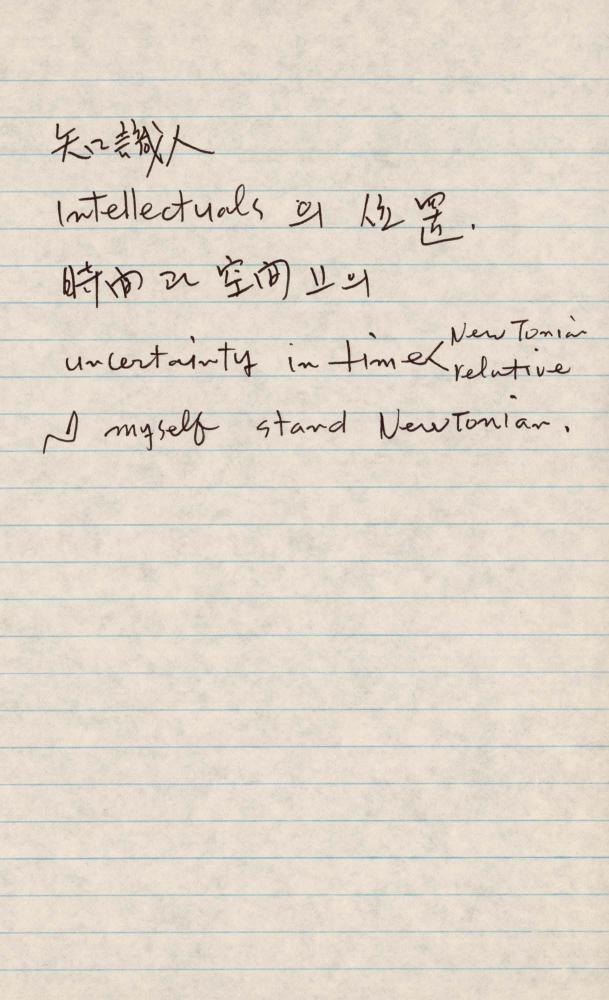 知識人
Intellectuals 의 位置.
時間과 空間上의
uncertainty in time < Newtonian
relative
I myself stand Newtonian.